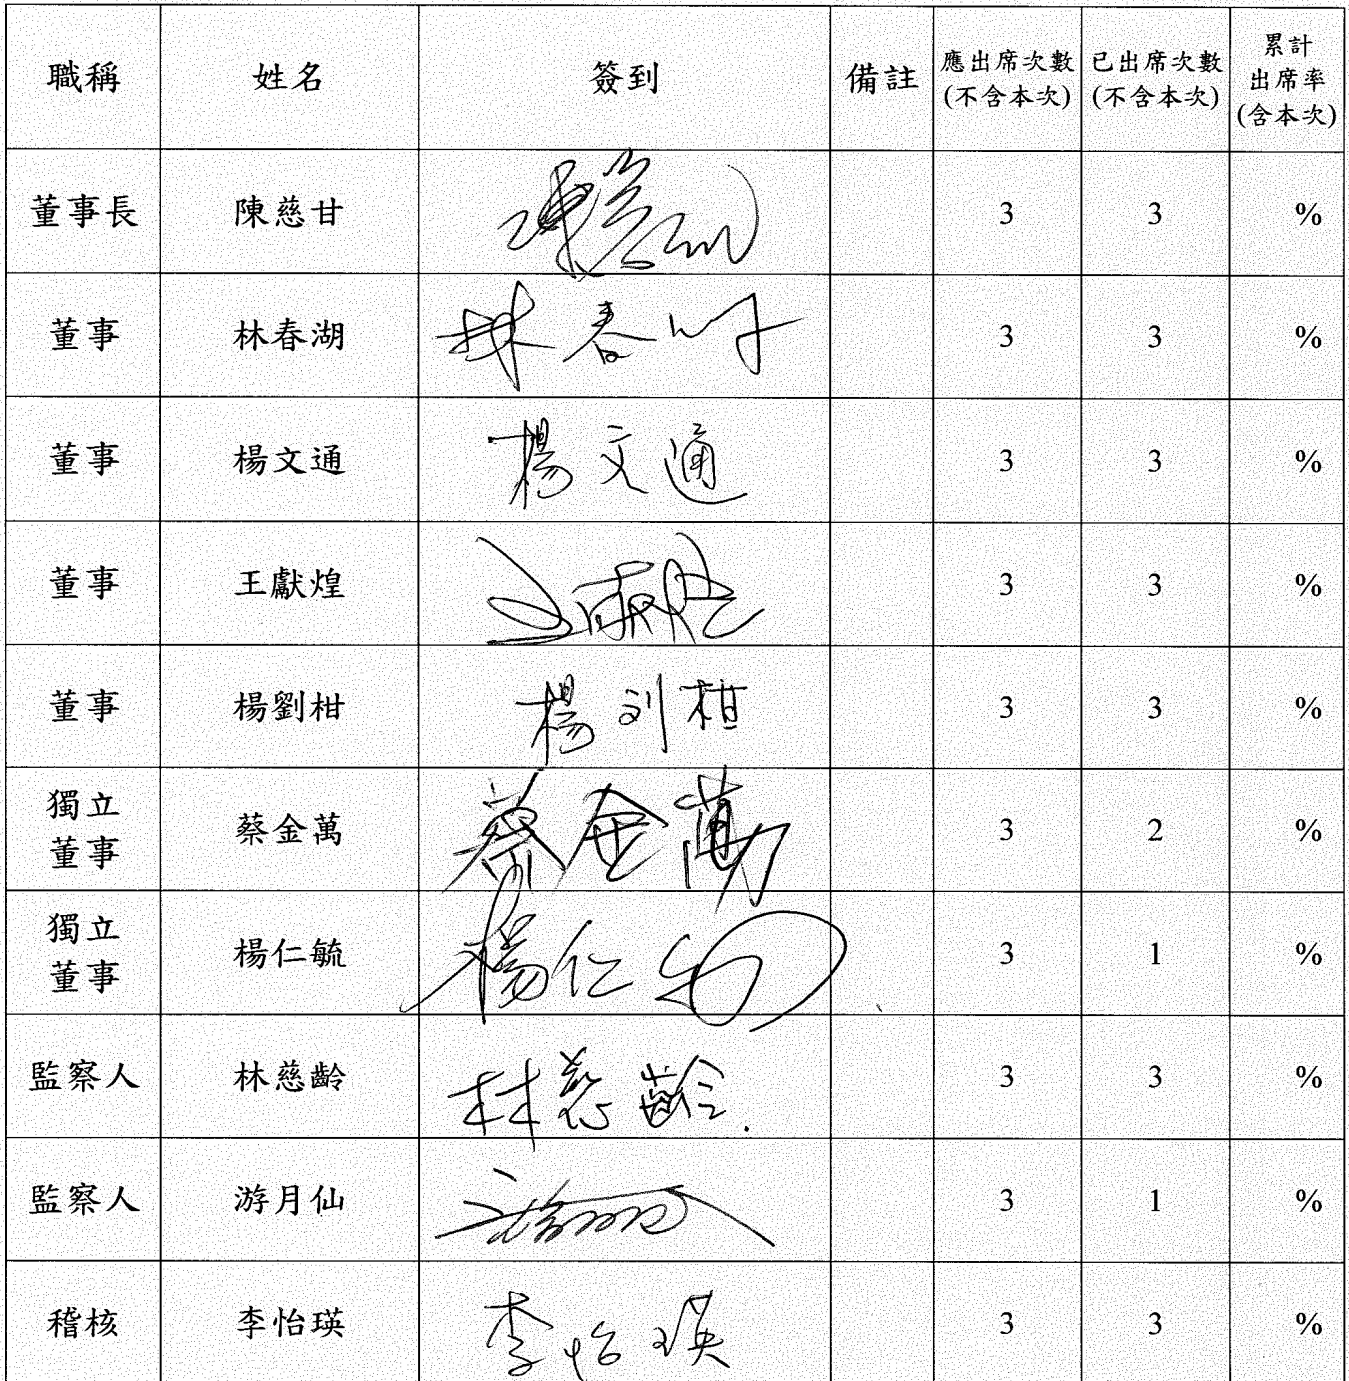 職稱 姓名 簽到 備註 應出席次數(不含本次) 已出席次數(不含本次) 累計出席率(含本次)
董事長 陳慈甘 3 3 %
董事 林春湖 林春 3 3 %
董事 楊文通 楊文通 3 3 %
董事 王獻煌 3 3 %
董事 楊劉柑 楊刘柑 3 3 %
獨立董事 蔡金萬 蔡金萬 3 2 %
獨立董事 楊仁毓 楊仁 3 1 %
監察人 林慈齡 林慈齡 3 3 %
監察人 游月仙 3 1 %
稽核 李怡瑛 李怡瑛 3 3 %